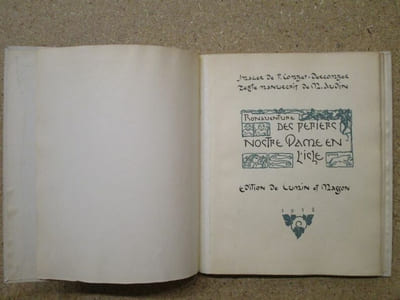 Images de P. Combet-Descombes
Texte manuscrit de M. Audin
Bonaventure
des Periers
Nostre Dame en
l'isle
Edition de Cumin et Masson